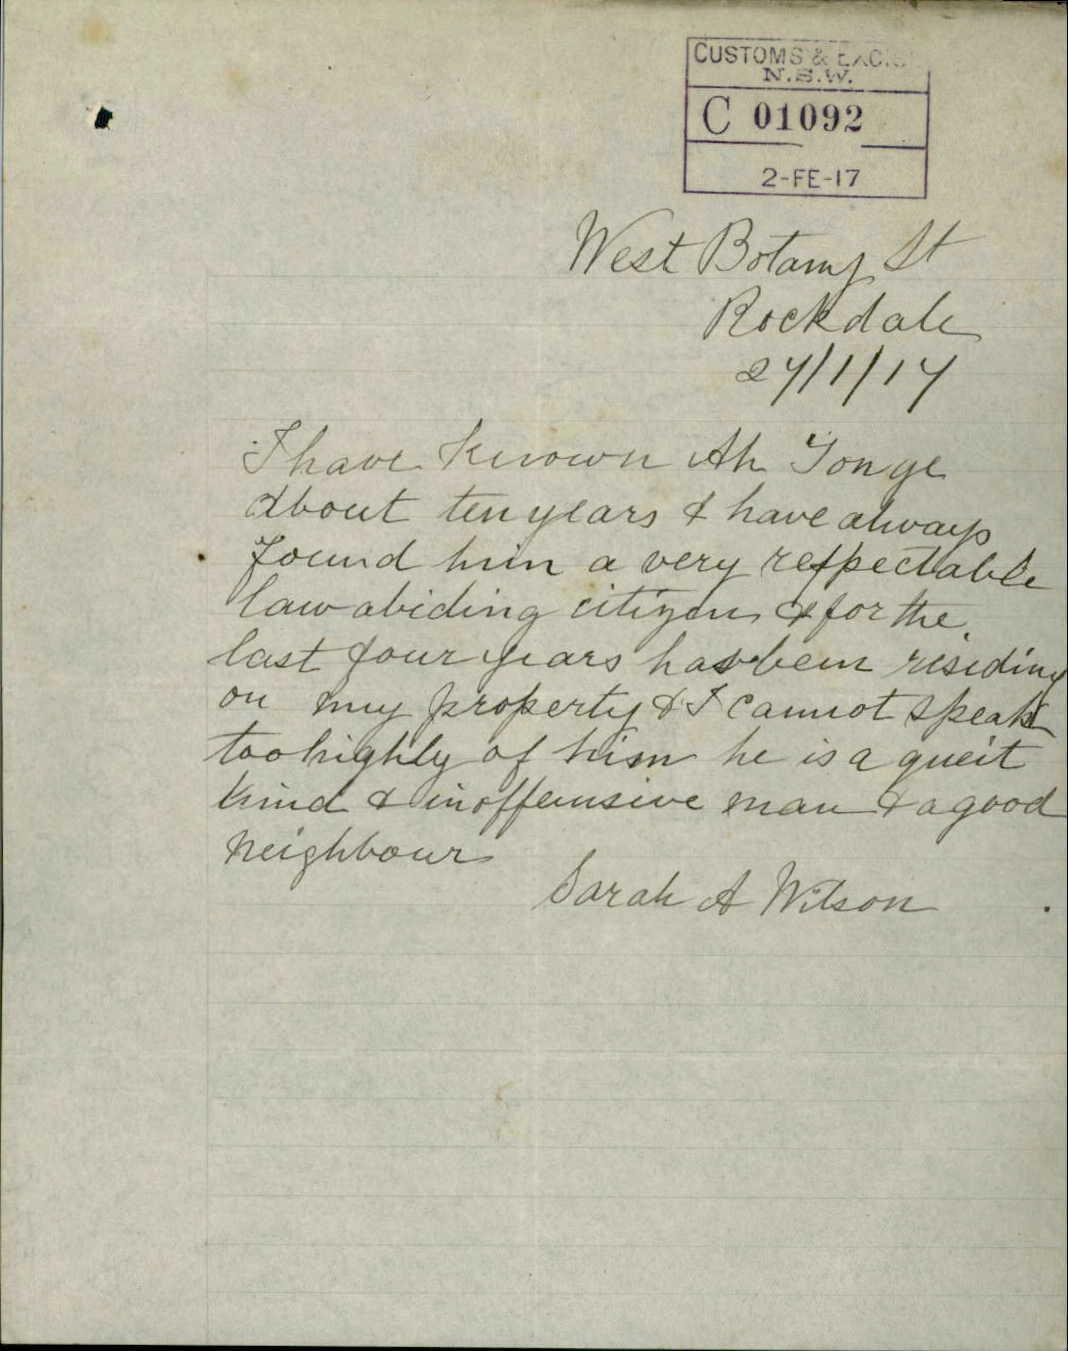 CUSTOMS & EXCISE
N.S.W.
C 01092
2-FE-17
West Botany St
Rockdale
27/1/17
I have known Ah Yonge
about ten years & have always
found him a very respectable
law abiding citizen & for the
last four years has been residing
on my property & I cannot speak
too highly of him he is a queit
kind & inoffensive man & a good
neighbour
Sarah A Wilson